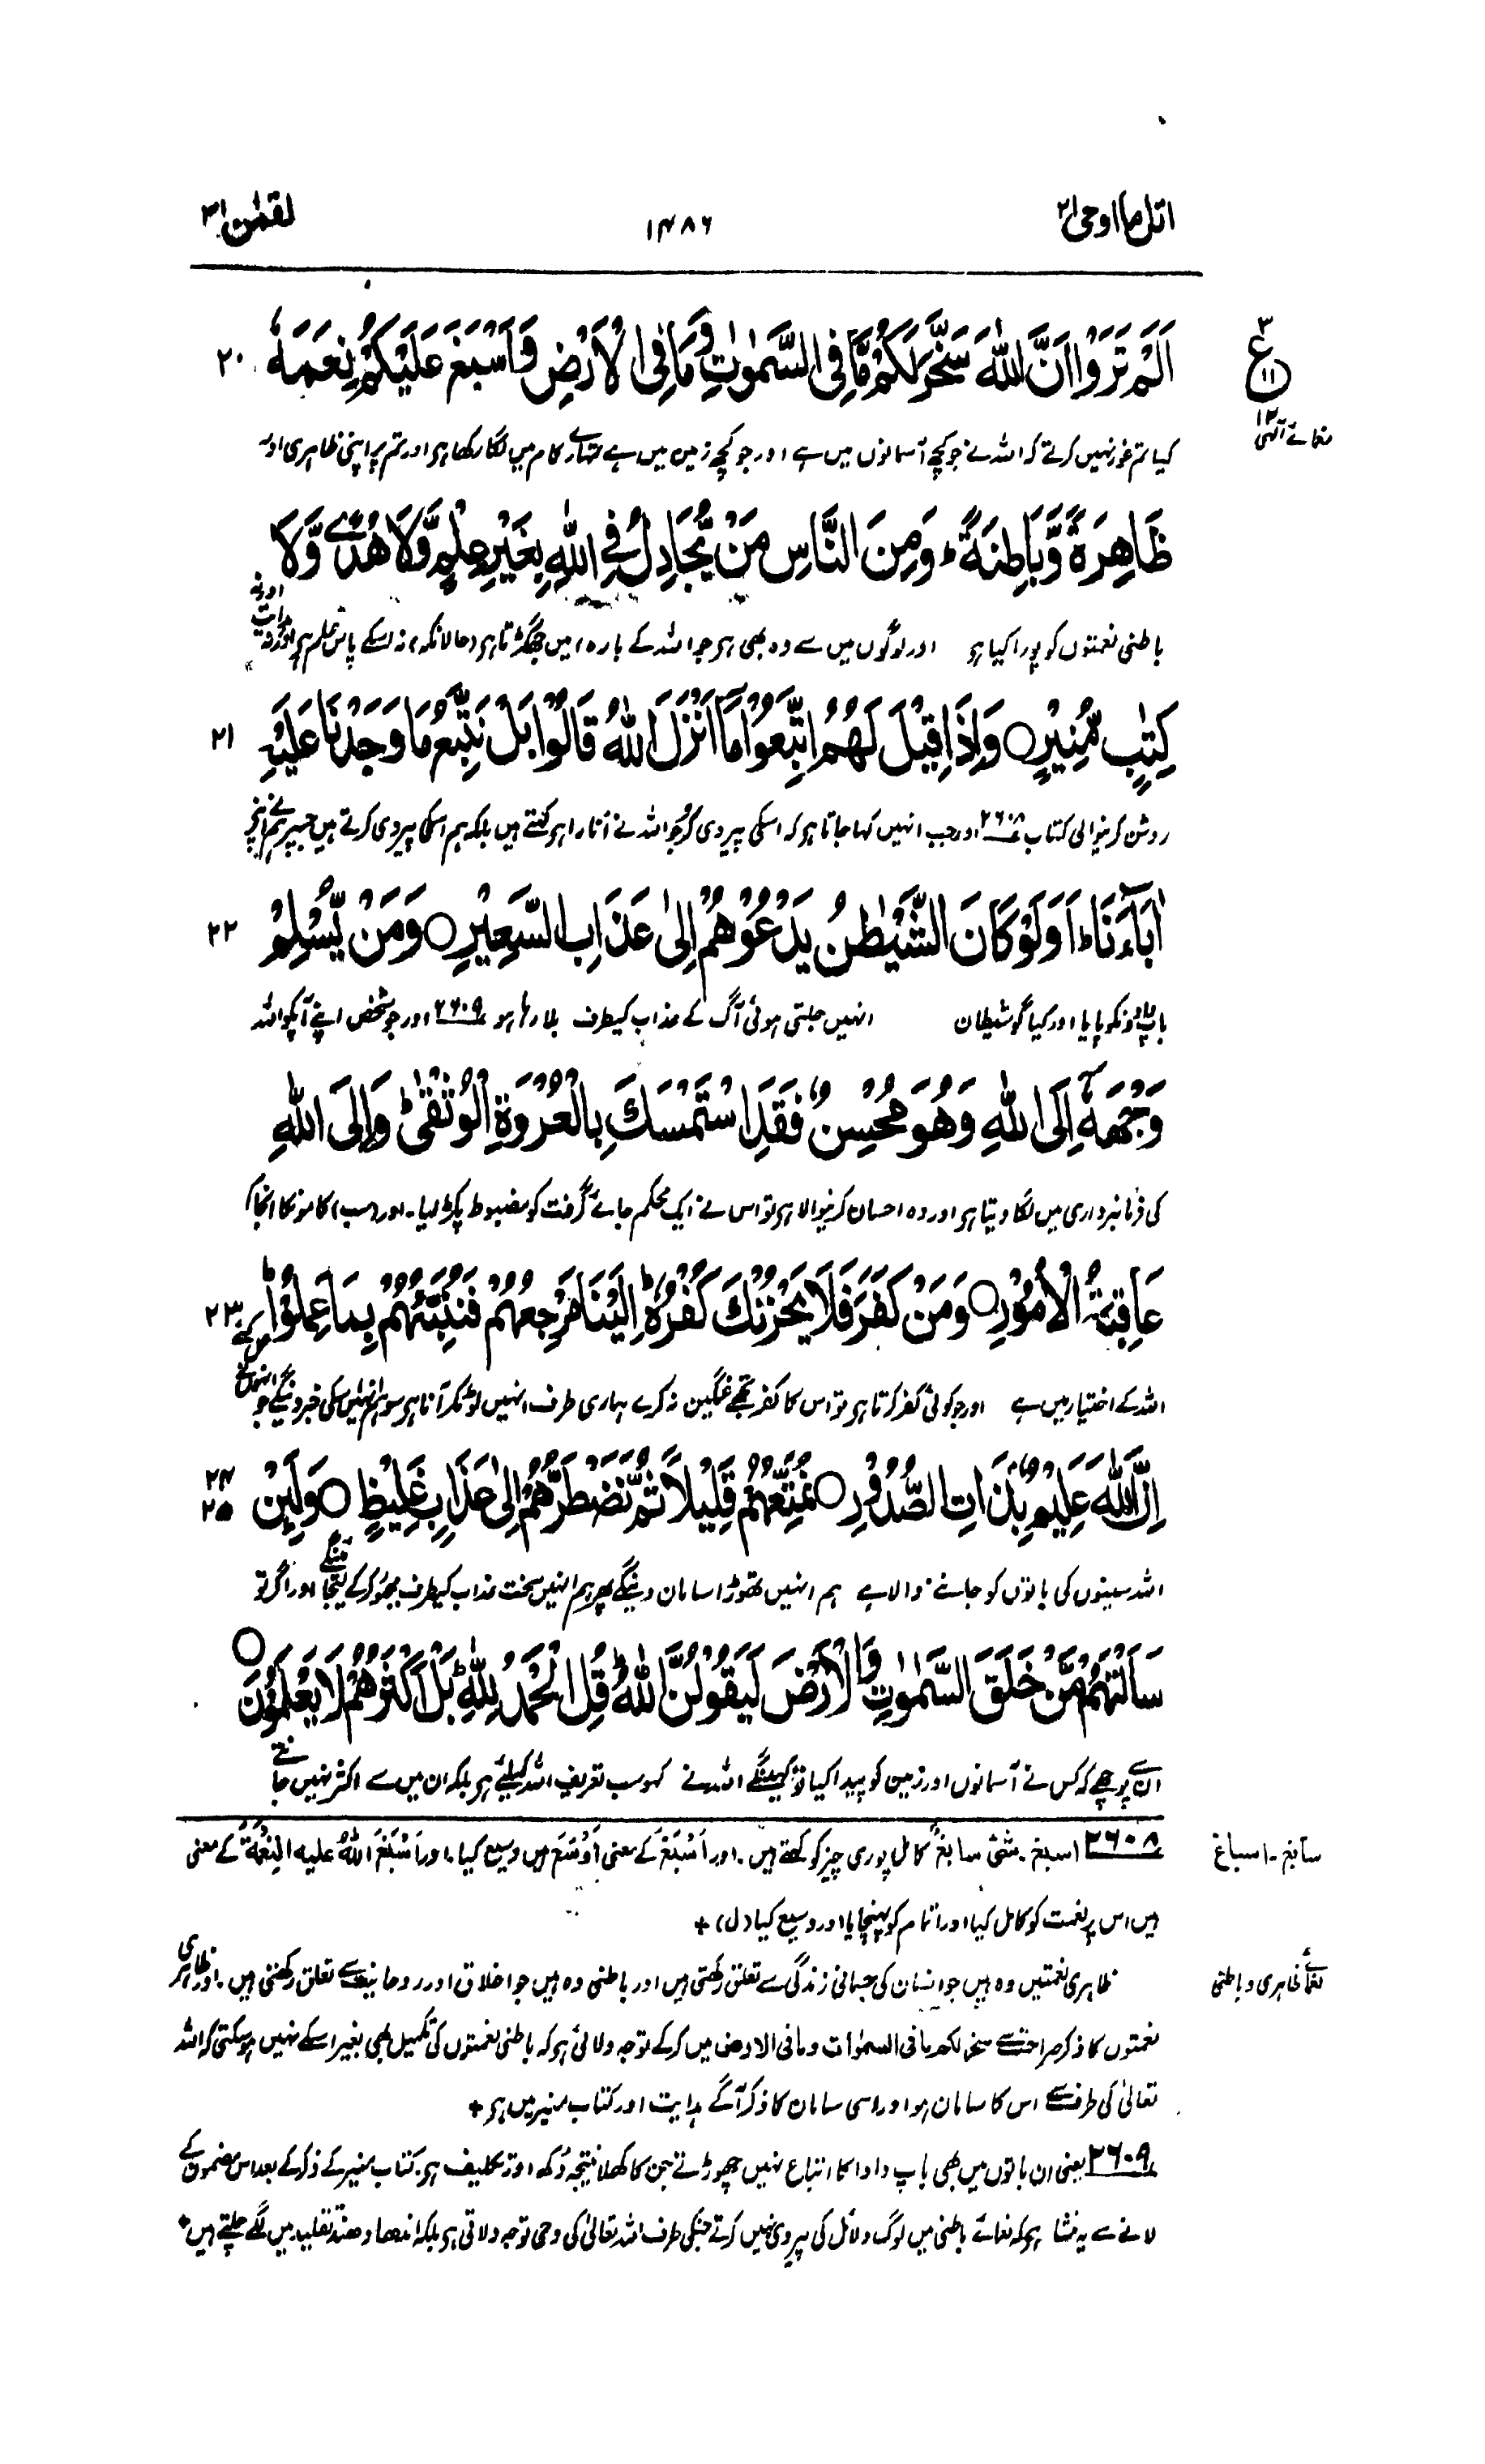 اتل ما اوحی ۲۱
۱۴۸۶
لقمٰن ۳۱
اَلَمْ تَرَوْا اَنَّ اللّٰهَ سَخَّرَ لَكُمْ مَّا فِی السَّمٰوٰتِ وَ مَا فِی الْاَرْضِ وَ اَسْبَغَ عَلَیْكُمْ نِعَمَهٗ ۲۰
۳ ع ۱۱ ۱۲
نعمائے الٰہی
کیا تم غور نہیں کرتے کہ اللہ نے جو کچھ آسمانوں میں ہے اور جو کچھ زمین میں ہے تمہارے کام میں لگا رکھا ہو اور تم پر اپنی ظاہری اور
ظَاهِرَةً وَّ بَاطِنَةً ؕ وَ مِنَ النَّاسِ مَنْ یُّجَادِلُ فِی اللّٰهِ بِغَیْرِ عِلْمٍ وَّ لَا هُدًی وَّ لَا
باطنی نعمتوں کو پورا کیا ہو اور لوگوں میں سے وہ بھی ہو جو اللہ کے بارہ میں جھگڑتا ہو (حالانکہ) نہ اسکے پاس علم ہو اور نہ ہدایت اور نہ
كِتٰبٍ مُّنِیْرٍ ○ وَ اِذَا قِیْلَ لَهُمُ اتَّبِعُوْا مَاۤ اَنْزَلَ اللّٰهُ قَالُوْا بَلْ نَتَّبِعُ مَا وَجَدْنَا عَلَیْهِ ۲۱
روشن کرنیوالی کتاب ۲۶۰۸ اور جب انہیں کہا جاتا ہو کہ اسکی پیروی کرو جو اللہ نے اُتارا ہو کہتے ہیں بلکہ ہم اسکی پیروی کرتے ہیں جسپر ہم نے اپنے
اٰبَآءَنَا ؕ اَوَ لَوْ كَانَ الشَّیْطٰنُ یَدْعُوْهُمْ اِلٰی عَذَابِ السَّعِیْرِ ○ وَ مَنْ یُّسْلِمْ ۲۲
باپ دادونکو پایا اور کیا گو شیطان انہیں جلتی ہوئی آگ کے عذاب کیطرف بلا رہا ہو ۲۶۰۹ اور جو شخص اپنے آپکو اللہ
وَجْهَهٗۤ اِلَی اللّٰهِ وَ هُوَ مُحْسِنٌ فَقَدِ اسْتَمْسَكَ بِالْعُرْوَةِ الْوُثْقٰی ؕ وَ اِلَی اللّٰهِ
کی فرمانبرداری میں لگا دیتا ہو اور وہ احسان کرنیوالا ہو تو اس نے ایک محکم جائے گرفت کو مضبوط پکڑ لیا ۔ اور (سب) کامونکا انجام
عَاقِبَةُ الْاُمُوْرِ ○ وَ مَنْ كَفَرَ فَلَا یَحْزُنْكَ كُفْرُهٗ ؕ اِلَیْنَا مَرْجِعُهُمْ فَنُنَبِّئُهُمْ بِمَا عَمِلُوْا ؕ ۲۳
اللہ کے اختیار میں ہے اور جو کوئی کفر کرتا ہو تو اس کا کفر تجھے غمگین نہ کرے ہماری طرف انہیں لوٹکر آنا ہو سو ہم انہیں اسکی خبر دینگے جو انہوں نے کیا
اِنَّ اللّٰهَ عَلِیْمٌۢ بِذَاتِ الصُّدُوْرِ ○ نُمَتِّعُهُمْ قَلِیْلًا ثُمَّ نَضْطَرُّهُمْ اِلٰی عَذَابٍ غَلِیْظٍ ○ وَ لَئِنْ ۲۴ ۲۵
اللہ سینوں کی باتوں کو جاننے والا ہے ہم انہیں تھوڑا سامان دینگے پھر ہم انہیں سخت عذاب کیطرف مجبور کر کے لیجائینگے اور اگر تو
سَاَلْتَهُمْ مَّنْ خَلَقَ السَّمٰوٰتِ وَ الْاَرْضَ لَیَقُوْلُنَّ اللّٰهُ ؕ قُلِ الْحَمْدُ لِلّٰهِ ؕ بَلْ اَكْثَرُهُمْ لَا یَعْلَمُوْنَ ○
ان سے پوچھے کہ کس نے آسمانوں اور زمین کو پیدا کیا تو کہینگے اللہ نے کہو سب تعریف اللہ کیلئے ہو بلکہ ان میں سے اکثر نہیں جانتے
سابغ ۔ اسباغ
۲۶۰۸ اسبغ ۔ شیٔ سابغ کامل پوری چیز کو کہتے ہیں ۔ اور اَسْبَغَ کے معنی اَوْسَعَ ہیں وسیع کیا ۔ اور اَسْبَغَ اللّٰهُ علیہ النِعْمَةَ کے معنی
ہیں اس پر نعمت کو کامل کیا اور اتمام کو پہنچایا اور وسیع کیا (ل) +
نعمائے ظاہری و باطنی
ظاہری نعمتیں وہ ہیں جو انسان کی جسمانی زندگی سے تعلق رکھتی ہیں اور باطنی وہ ہیں جو اخلاق اور روحانیت سے تعلق رکھتی ہیں ۔ اور ظاہری
نعمتوں کا ذکر صراحت سے سخر لکم ما فی السمٰوات و ما فی الارض میں کر کے توجہ دلائی ہو کہ باطنی نعمتوں کی تکمیل بھی بغیر اسکے نہیں ہو سکتی کہ اللہ
تعالیٰ کی طرف سے اس کا سامان ہو اور اسی سامان کا ذکر آگے ہدایت اور کتاب منیر میں ہو +
۲۶۰۹ یعنی ان باتوں میں بھی باپ دادا کا اتباع نہیں چھوڑتے جن کا کھلا نتیجہ دُکھ اور تکلیف ہو ۔ کتاب منیر کے ذکر کے بعد اس مضمون کے
لانے سے یہ منشا ہو کہ نعمائے باطنی میں لوگ دلائل کی پیروی نہیں کرتے جنکی طرف اللہ تعالیٰ کی وحی توجہ دلاتی ہو بلکہ اندھا دھند تقلید میں لگے چلتے ہیں +